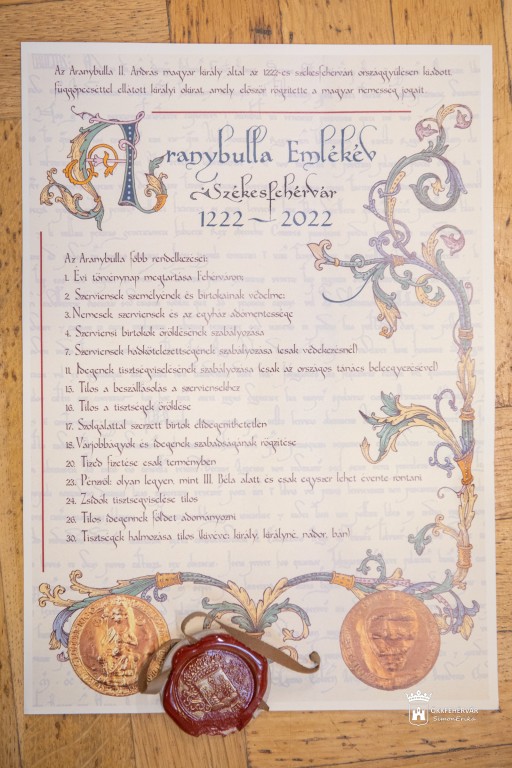 Az Aranybulla II. András magyar király által az 1222-es székesfehérvári országgyűlésen kiadott,
függőpecséttel ellátott királyi okirat, amely először rögzítette a magyar nemesség jogait.
Aranybulla Emlékév
Székesfehérvár
1222 – 2022
Az Aranybulla főbb rendelkezései:
1. Évi törvénynap megtartása Fehérváron;
2. Szerviensek személyének és birtokainak védelme;
3. Nemesek szerviensek és az egyház adómentessége
4. Szerviensi birtokok öröklésének szabályozása
7. Szerviensek hadkötelezettségének szabályozása (csak védekezésnél)
11. Idegenek tisztségviselésének szabályozása (csak az országos tanács beleegyezésével)
15. Tilos a beszállásolás a szerviensekhez
16. Tilos a tisztségek öröklése
17. Szolgálattal szerzett birtok elidegeníthetetlen
18. Várjobbágyok és idegenek szabadságának rögzítése
20. Tized fizetése csak terményben
23. Pénzük olyan legyen, mint III. Béla alatt és csak egyszer lehet évente rontani
24. Zsidók tisztségviselése tilos
26. Tilos idegennek földet adományozni
30. Tisztségek halmozása tilos (kivéve: király, királyné, nádor, bán)
ÖKK FEHÉRVÁR
Simon Erika